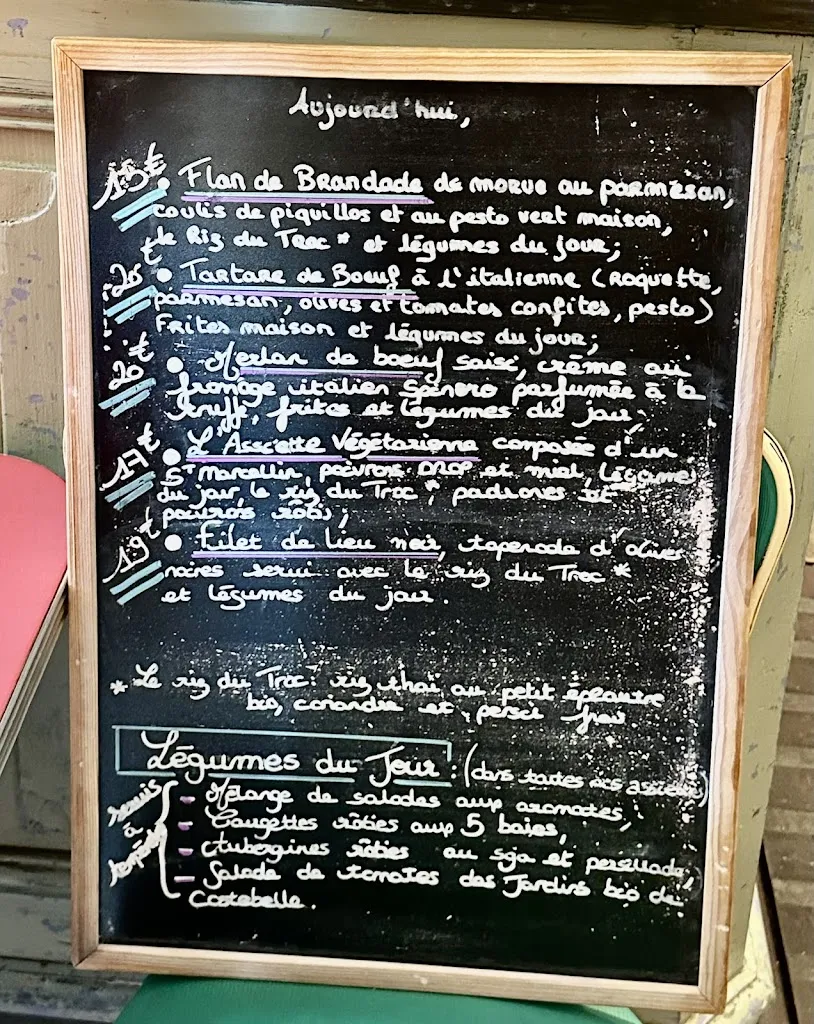 Aujourd'hui,
15€ • Flan de Brandade de morue au parmesan,
coulis de piquillos et au pesto vert maison,
le Riz du Troc * et légumes du jour;
20€ • Tartare de Boeuf à l'italienne (roquette,
parmesan, olives et tomates confites, pesto)
Frites maison et légumes du jour;
20€ • Merlan de boeuf saisi, crème au
fromage italien parfumée à la
truffe, frites et légumes du jour;
17€ • L'Assiette Végétarienne composée d'un
St Marcellin, poivrons DROP et miel, légumes
du jour, le riz du Troc *, padrones et
poivrons rôtis;
19€ • Filet de lieu noir, tapenade d'olives
noires servi avec le riz du Troc *
et légumes du jour.
* Le riz du Troc: riz thaï au petit épeautre
bio, coriandre et persil frais
Légumes du Jour : (dans toutes nos assiettes)
servis à
- Mélange de salades aux aromates,
- Courgettes rôties aux 5 baies,
- Aubergines rôties au soja et persillade,
- Salade de tomates des Jardins bio de
Costebelle.